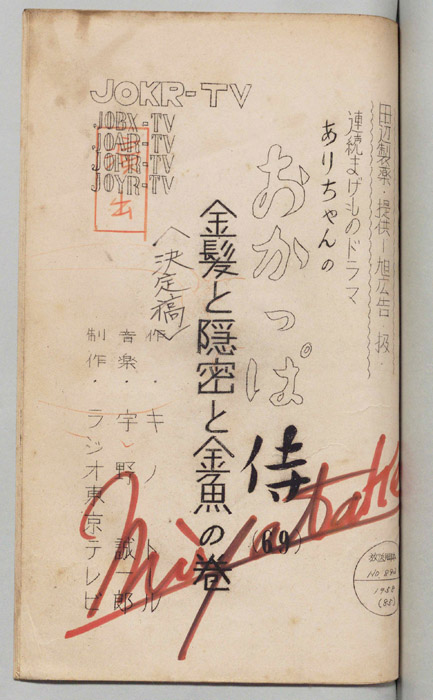 田辺製薬・提供 旭広告・扱・
連続まげものドラマ
ありちゃんの
おかっぱ侍
(69)
金髪と隠密と金魚の巻
〈決定稿〉
作・キノトール
音楽・宇野誠一郎
制作・ラジオ東京テレビ
JOKR-TV
JOBX-TV
JOAR-TV
JOPR-TV
JOYR-TV
1958